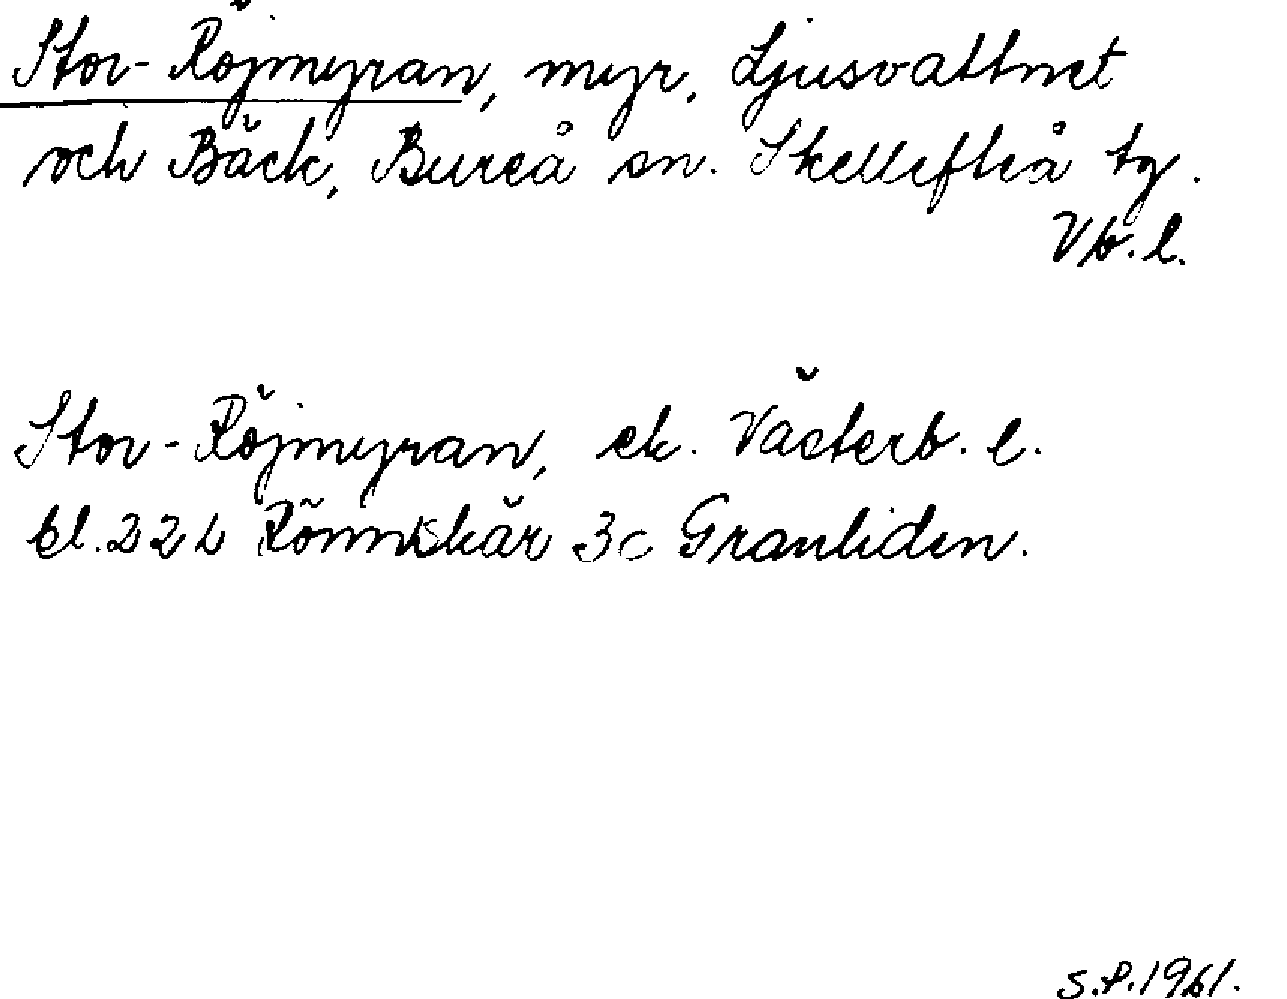 Stor-Röjmyran, myr, Ljusvattnet
och Bäck, Bureå sn. Skellefteå tg.
Vb.l.
Stor-Röjmyran, ek. Västerb. l.
bl. 22L Rönnskär 3c Granliden.
S.P. 1961.